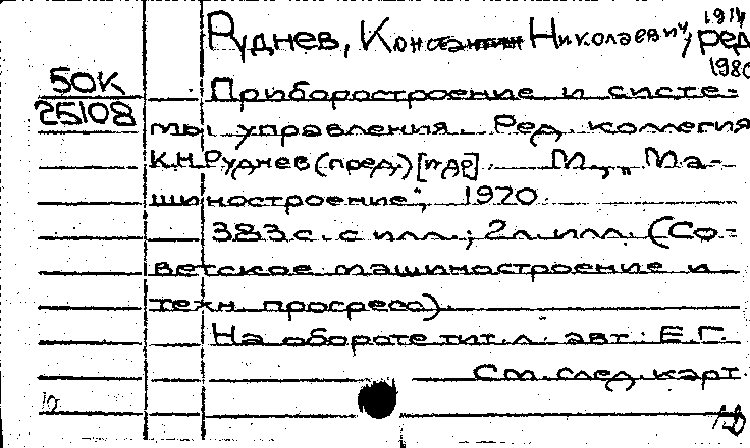 Руднев, Константин Николаевич, ред.
1911
1980
50К
25108
Приборостроение и систе-
мы управления. Ред. коллегия
К.Н.Руднев (пред.) [и др]. М., „Ма-
шиностроение", 1970.
383 с. с илл.; 2 л. илл. (Со-
ветское машиностроение и
техн прогресс).
На обороте тит. л. авт.: Е.Г.
См. след. карт.
10